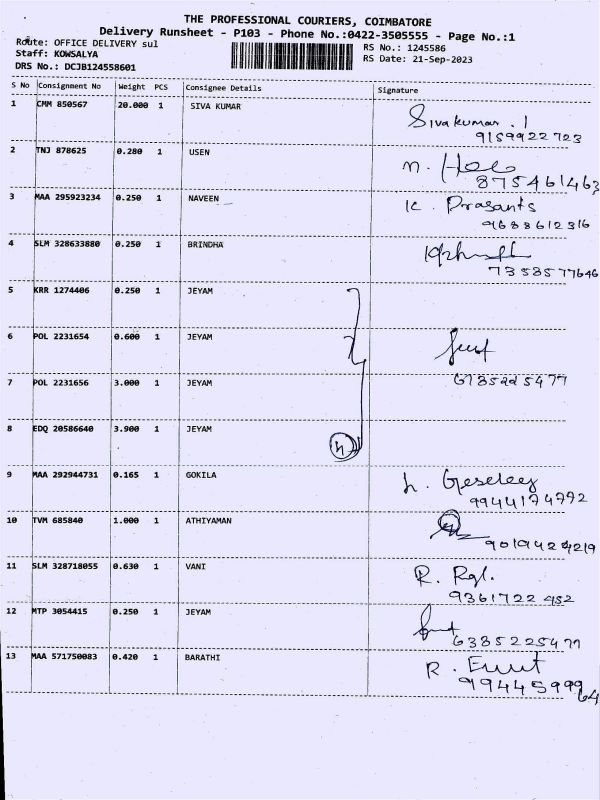 THE PROFESSIONAL COURIERS, COIMBATORE
Delivery Runsheet - P103 - Phone No.:0422-3505555 - Page No.:1
Route: OFFICE DELIVERY sul
Staff: KOWSALYA
DRS No.: DCJB124558601
RS No.: 1245586
RS Date: 21-Sep-2023
S No Consignment No Weight PCS Consignee Details Signature
1 CMM 850567 20.000 1 SIVA KUMAR Sivakumar . 1
9159922723
2 TNJ 878625 0.280 1 USEN
875461463
3 MAA 295923234 0.250 1 NAVEEN K. Prasanth
9688612316
4 SLM 328633880 0.250 1 BRINDHA
7358577646
5 KRR 1274406 0.250 1 JEYAM
6 POL 2231654 0.600 1 JEYAM
7 POL 2231656 3.000 1 JEYAM
8 EDQ 20586640 3.900 1 JEYAM
4
9 MAA 292944731 0.165 1 GOKILA
9944174792
10 TVM 685840 1.000 1 ATHIYAMAN
9019424219
11 SLM 328718055 0.630 1 VANI R.
9361722452
12 MTP 3054415 0.250 1 JEYAM
6385225477
13 MAA 571750083 0.420 1 BARATHI R.
9944599964